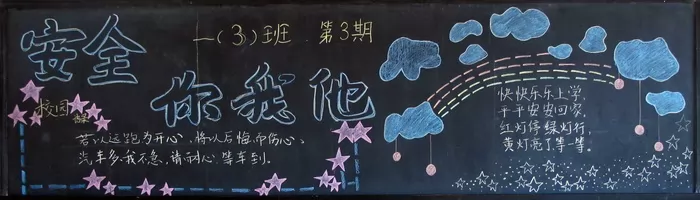 安全
一(3)班 第3期
你我他
校园
若以逗跑为开心，将以后悔而伤心。
当车多我不急，请耐心等车到。
快快乐乐上学，
平平安安回家，
红灯停绿灯行，
黄灯亮了等一等。